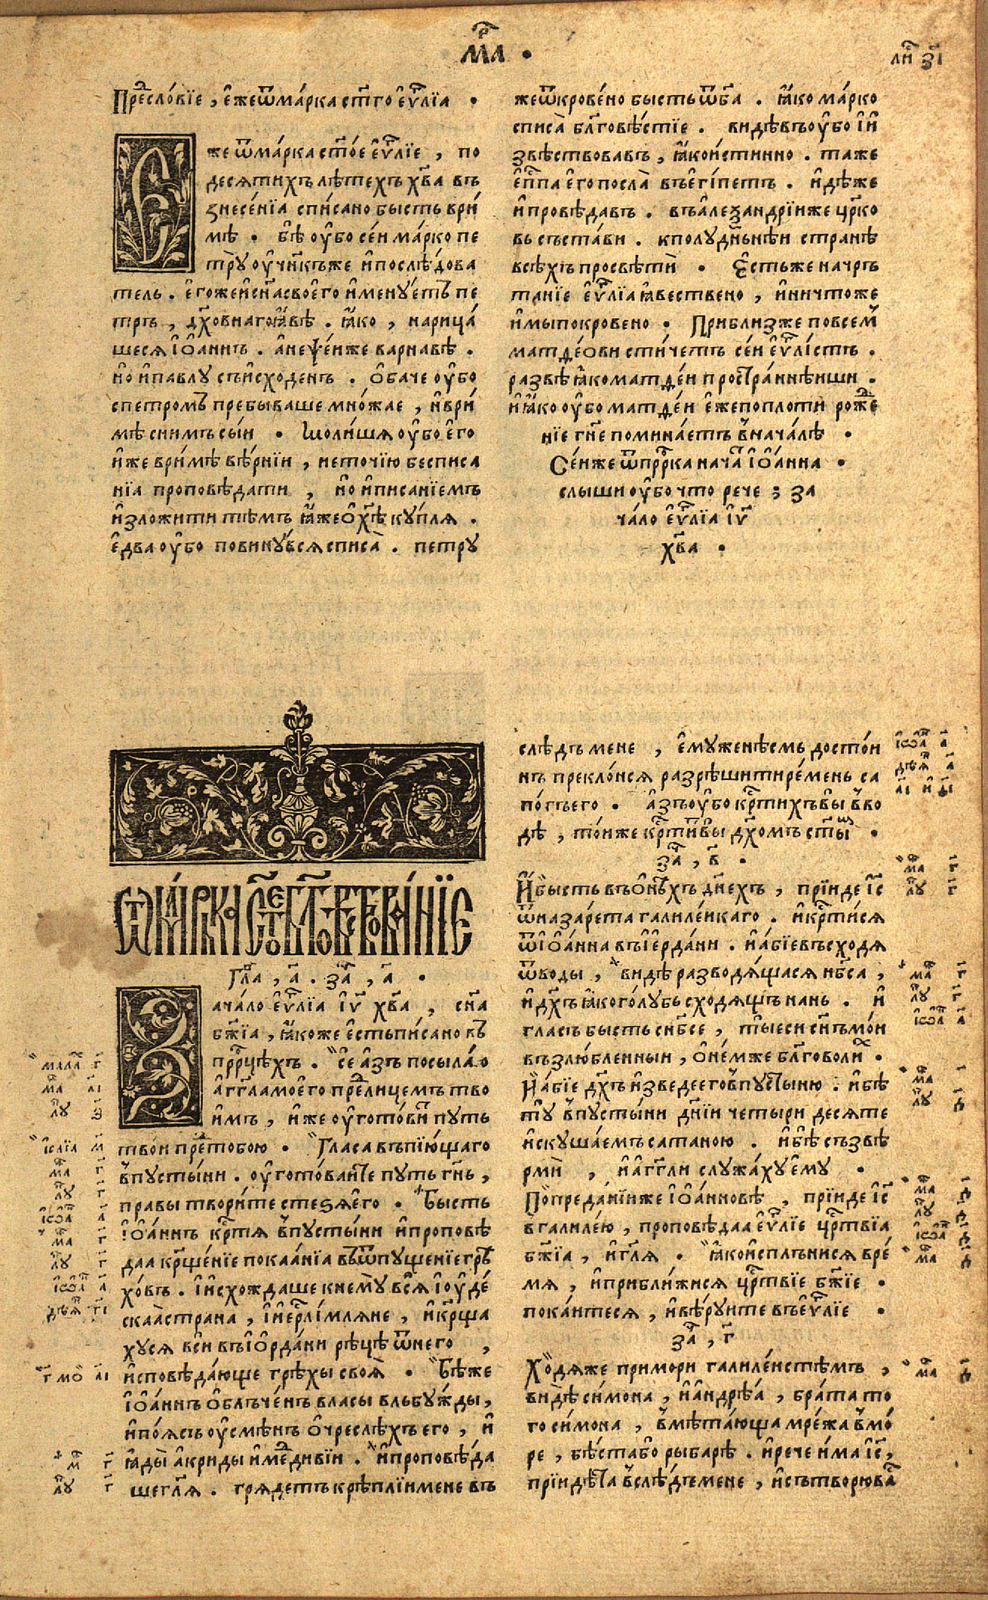 мр҃к ·
ли҃ з҃і
Пре҃дсло́вїе , є҆́же ѿ ма́рка ст҃го є҆ѵ҃лїа ·
Є҆же ѿ ма́рка ст҃о́е є҆ѵ҃лїе , по
десѧтихъ лѣтехъ хв҃а въ
знесе́нїа спи́сано бысть ври́
мѣ · бѣ оу҆бо се́й ма́рко пе
тру̀ оу҆чн҃къ же и҆ послѣ́дова
тель . є҆го же и҆ сн҃а своего̀ и҆менꙋ́етъ пе
тръ , дх҃овнаго ꙗ҆́вѣ . ꙗ҆́ко , нарица́
шесѧ і҆ѡ҆а́ннъ . а҆неѱе́й же варна́вѣ .
но и҆ па́влꙋ съисходенъ . ѻ҆ба́че оу҆бо
с петро́мъ пребыва́ше мно́жае , и҆ в ри́
мѣ с ни́мъ сы́й · Моли́ша оу҆бо є҆го
и҆же в ри́мѣ вѣ́рнїи , не то́чїю бес писа
нїа проповѣ́дати , но и҆ писа́нїемъ
и҆зложи́ти тѣ́мъ ꙗ҆́же ѻ҆ хѣ҃ кꙋ́плѧ .
є҆два̀ оу҆бо повинꙋ́всѧ списа̀ . петрꙋ
же ѿкрове́но бысть ѿ бг҃а . ꙗ҆́ко ма́рко
списа̀ бл҃говѣ́стїе . ви́дѣвъ оу҆бо и҆ и҆
звѣ́ствовавъ , ꙗ҆́ко и҆́стинно . та́же
є҆пп҃а є҆го посла̀ въ є҆гі́петъ . и҆дѣ́же
и҆ проповѣ́давъ . въ а҆леѯандрі́и же цр҃ко
вь съста́ви . к полꙋ́днѣй странѣ
всѣ́хъ просвѣтѝ · Є҆́сть же начрь
танїе є҆ѵ҃лїа ꙗ҆́вествено , и҆ ничто́же
и҆мы покрове́но · Приближ же по всемꙋ
матѳе́ови сти́четъ се́й є҆ѵ҃ли́стъ .
развѣ̀ ꙗ҆́ко матѳе́й простра́ннѣйши .
и҆ ꙗ҆́ко оу҆бо матѳе́й є҆́же по пло́ти роже
нїе гн҃е помина́етъ в нача́лѣ ·
Се́й же ѿ прⷪ҇рка нача̀ і҆ѡ҆а́нна ·
слы́ши оу҆бо что рече ; за
ча́ло є҆ѵ҃лїа і҆ѵ҃
хв҃а ·
Ѿ ма́рка ст҃о́е бл҃говѣствова́нїе
гла҃ , а҃ . за҃ , а҃ ·
За ча́ло є҆ѵ҃лїа і҆ѵ҃ хв҃а , сн҃а
бж҃їа , ꙗ҆́коже є҆́сть пи́сано въ
прⷪ҇рцѣхъ . се а҆́зъ посыла́ю
а҆́гг҃ла моего̀ пре҃д лице́мъ тво
и҆мъ , и҆́же оу҆гото́витъ пꙋ́ть
тво́й пре҃д тобо́ю · Гла́съ въпїю́щаго
в пꙋсты́ни . оу҆гото́вайте пꙋ́ть гн҃ь ,
пра́вы твори́те стеѕѧ̀ є҆го̀ · Бы́сть
і҆ѡ҆а́ннъ кр҃тѧ в пꙋсты́ни и҆ проповѣ́
даа кр҃ще́нїе покаа́нїа въ ѿпꙋще́нїе грѣ
хо́въ . И҆ и҆схожда́ше к немꙋ̀ всѧ̀ і҆ю҆де́
скаа страна̀ , и҆ і҆ер҃ли́млѧне , и҆ кр҃ща́
хꙋсѧ всѝ въ і҆ѻ҆рда́ни рѣцѣ̀ ѿ него̀ ,
и҆сповѣ́дающе грѣхѝ своѧ̀ · Бѣ́ же
і҆ѡ҆а́ннъ ѻ҆блъче́нъ власы̀ вельбꙋ́жды ,
и҆ по́ѧсъ оу҆сме́нъ ѻ҆ чре́слѣхъ є҆го̀ , и҆
ꙗ҆ды̀ а҆кри́ды и҆ ме́дъ ди́вїй . и҆ проповѣ́да
ше гл҃ѧ . грѧде́тъ крѣ́плїй мене въ
слѣ́дъ мене , є҆мꙋ́же нѣ́смь досто́и
нъ прекло́нсѧ разрѣши́ти реме́нь са
по́гъ є҆го̀ . а҆́зъ оу҆бо кр҃ти́хъ вы̀ во
дѣ̀ , то́й же кр҃ти́тъ вы̀ дх҃омъ ст҃ы́мъ ·
за҃ , в҃ ·
И҆ бы́сть въ ѻ҆́ны дн҃ехъ , прїи́де і҆с҃
ѿ назаре́та галиле́йкаго . и҆ кр҃ти́сѧ
ѿ і҆ѡ҆а́нна въ і҆е҆рда́ни . и҆ а҆́бїе въсходѧ̀
ѿ воды̀ , ви́дѣ разводѧ́щасѧ нб҃са̀ ,
и҆ дх҃ъ ꙗ҆́ко го́лꙋбь сходѧ́щъ на́нь . и҆
гла́съ бы́сть с нб҃сѐ , ты̀ є҆сѝ сн҃ъ мо́й
възлю́бленный , ѻ҆ не́мже бл҃говоли́хъ ·
И҆ а҆́бїе дх҃ъ и҆зведѐ є҆го̀ в пꙋсты́ню . и҆ бѣ̀
тꙋ̀ в пꙋсты́ни дні́й четы́ри десѧте
и҆скꙋша́емъ сатано́ю . и҆ бѣ̀ съ звѣ
рмѝ , и҆ а҆́гг҃ли слꙋжа́хꙋ є҆мꙋ̀ ·
По преда́нїи же і҆ѡ҆а́нновѣ , прїи́де і҆с҃
в галиле́ю , проповѣ́даа є҆ѵ҃лїе цр҃твїа
бж҃їа , и҆ гл҃ѧ · ꙗ҆́ко и҆спль́нисѧ вре́
мѧ , и҆ прибли́жисѧ цр҃твїе бж҃їе ·
пока́йтесѧ , и҆ вѣ́рꙋйте въ є҆ѵ҃лїе ·
за҃ , г҃
Ходѧ́ же при мо́ри галиле́йстѣмъ ,
ви́дѣ си́мона , и҆ а҆ндрѣ́а , бра́та то
го̀ си́мона , вмѣта́юща мре́жа в мо́
ре , бѣ́ста бо рыбарѧ̀ . и҆ речѐ и҆ма і҆с҃ ,
прїиди́та вслѣ́дъ мене , и҆ сътворю̀ ва